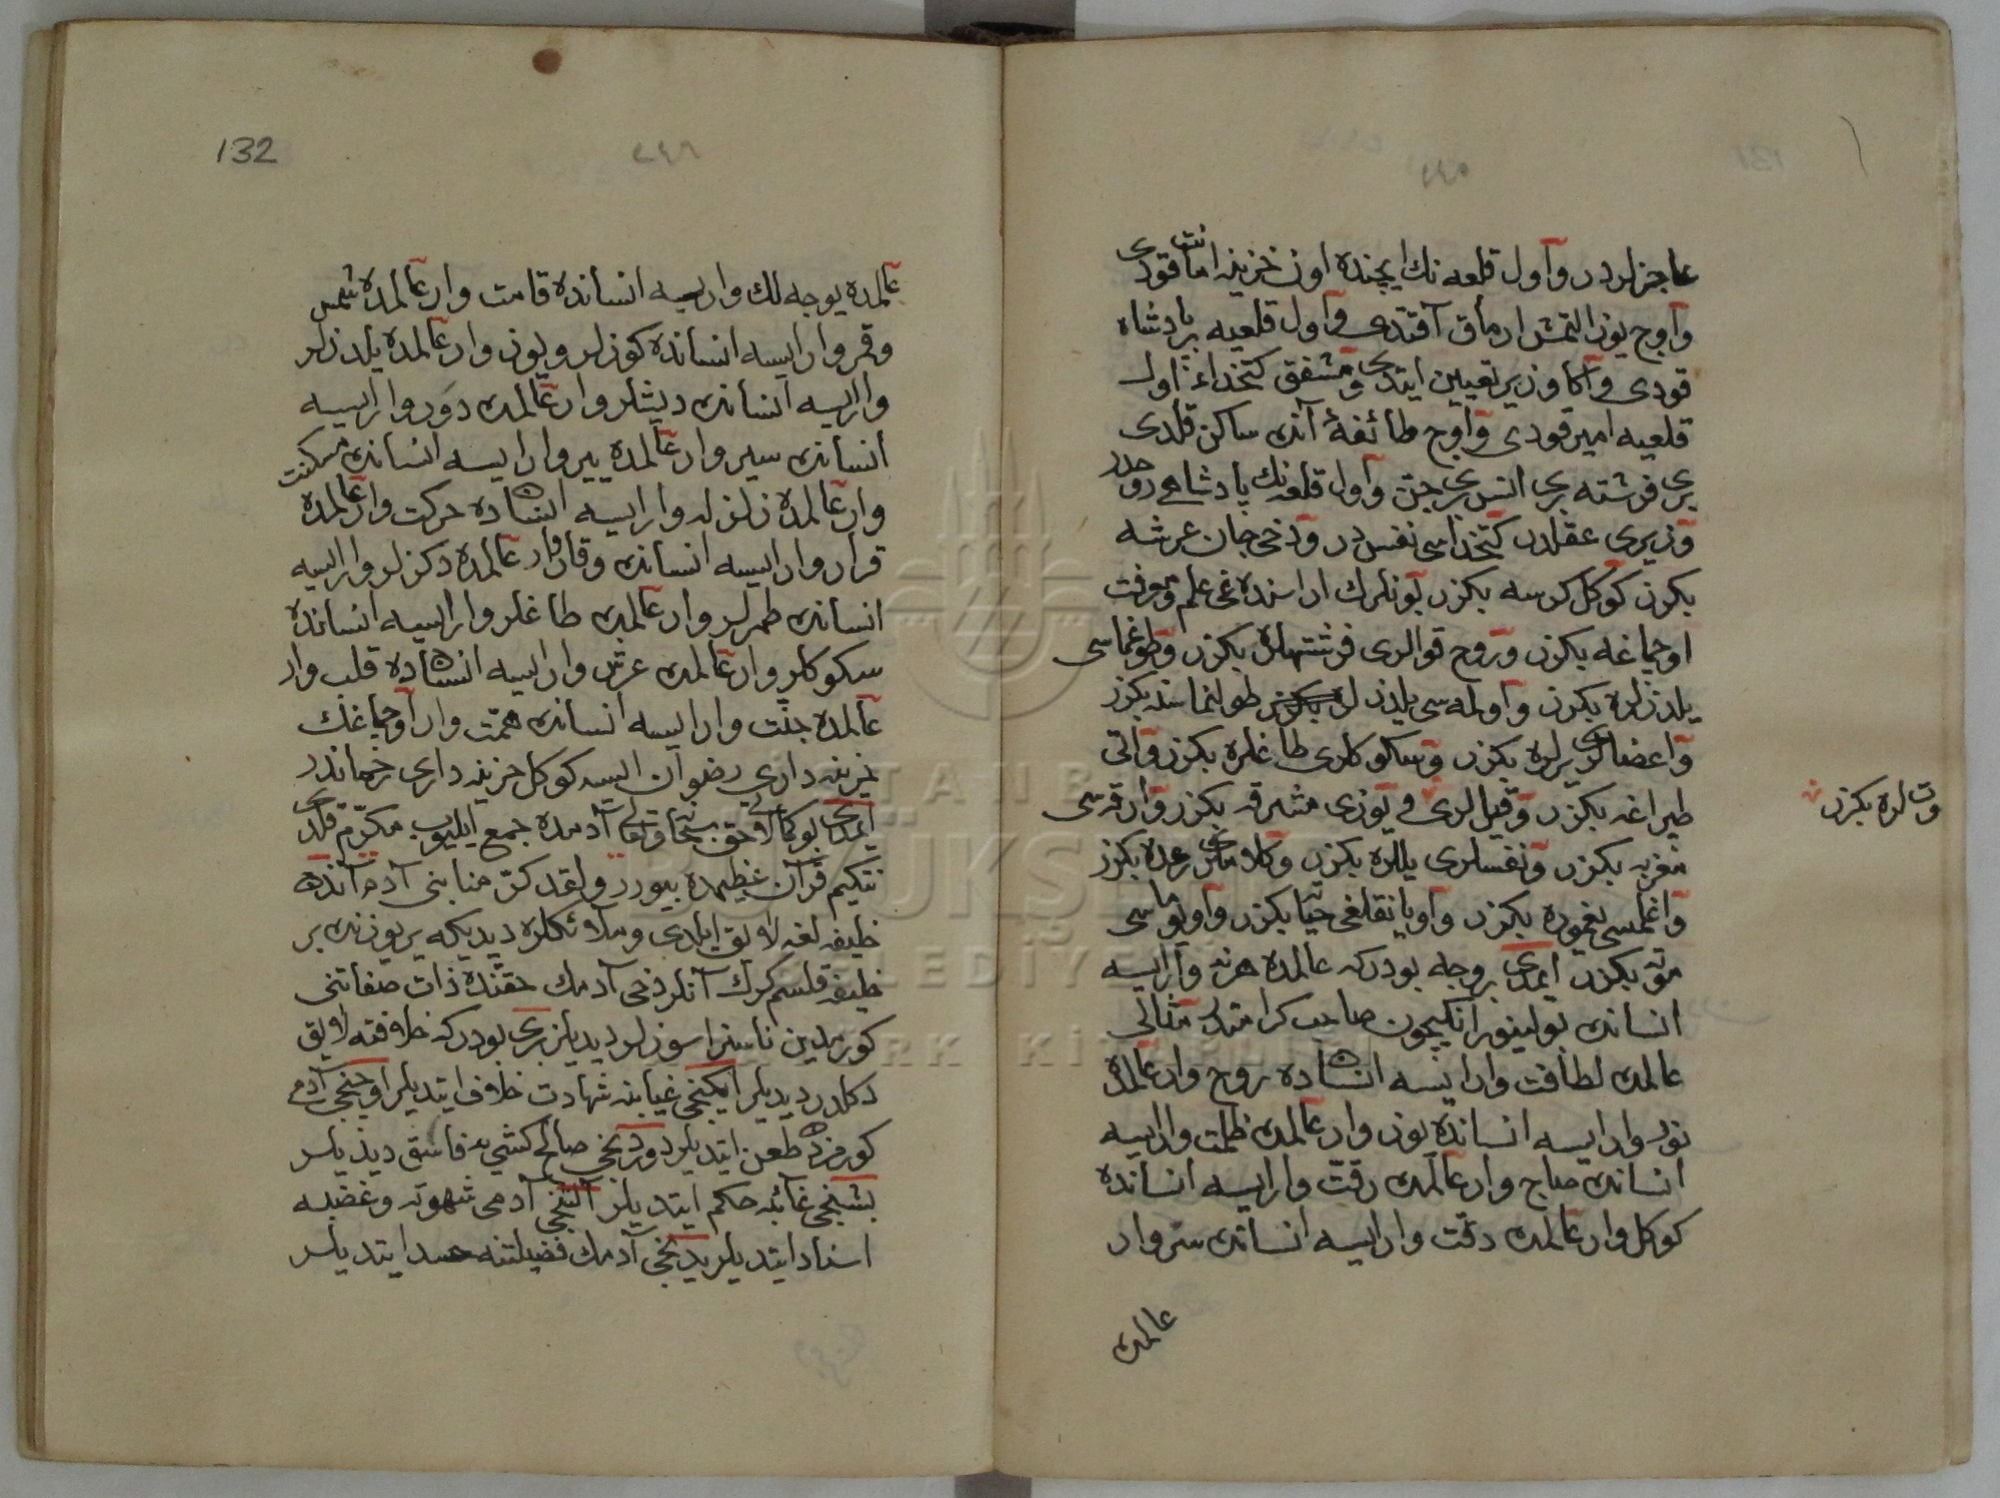 ٢٤٥
عاجزلردر و اول قلعه نك ايچنده اون خزينه امانت قودى
و اوچ يوز التمش ارماق آقتدى و اول قلعيه بر پادشاه
قودى و آكا وزير تعيين ايتدى و مشفق كتخداء اول
قلعيه امير قودى و اوچ طائفهٔ آنده ساكن قلدى
برى فرشته برى انس برى جن و اول قلعه نك پادشاهى روحدر
وزيرى عقلدر كتخداسى نفس در و دخى جان عرشه
بكزر كوكل كرسه بكزر بونلرك اراسنده غى علم و معرفت
اوچماغه بكزر و روح قوالرى فرشتهلره بكزر و طوغماسى
يلدزلره بكزر و اولمه سى يلدزلر طولنماسنه بكزر
و اعضالرى يرلره بكزر و سكوكلرى طاغلره بكزر و اتى
طپراغه بكزر و قيللرى وتلره بكزر و يوزى مشرقه بكزر و ارقه سى
مغربه بكزر و نفسلرى يللره بكزر و كلاملرى رعده بكزر
و اغلمسى يغموره بكزر و اويانقلغى حياته بكزر و اويوماسى
موته بكزر ايمدى بر وجه بودركه عالمده هر نه وار ايسه
انسانده بولينور انكيچون صاحب كرامتدر مثالى
عالمده لطافت وار ايسه انسانده روح وار عالمده
نور وار ايسه انسانده يوز وار عالمده ظلمت وار ايسه
انسانده صاچ وار عالمده رقت وار ايسه انسانده
كوكل وار عالمده دقت وار ايسه انسانده سر وار
عالمده
132
٢٤٦
عالمده يوجه لك وار ايسه انسانده قامت وار عالمده شمس
و قمر وار ايسه انسانده كوزلر و يوز وار عالمده يلدزلر
وار ايسه انسانده ديشلر وار عالمده دور وار ايسه
انسانده سير وار عالمده ير وار ايسه انسانده مسكنت
وار عالمده زلزله وار ايسه انسانده حركت وار عالمده
قرار وار ايسه انسانده وقار وار عالمده دكزلر وار ايسه
انسانده طمرلر وار عالمده طاغلر وار ايسه انسانده
سكوكلر وار عالمده عرش وار ايسه انسانده قلب وار
عالمده جنت وار ايسه انسانده همت وار اوچماغك
خزينه دارى رضوان ايسه كوكل خزينه دارى رحماندر
ايمدى بو كمالاتى حق سبحانه و تعالى آدمده جمع ايليوب مكرم قلدى
نتكيم قرآن عظيمده بيورر و لقد كرمنا بنى آدم آنده
خليفه لغه لايق ايلدى و ملائكلره ديديكه ير يوزنده بر
خليفه قلسم كرك آنلر دخى آدمك حقنده ذات صفاتنى
كورمدين ناسزا سوزلر ديديلر برى بودركه خلافته لايق
دكلدر ديديلر ايكنجى غيابنه شهادت خلاف ايتديلر اوچنجى آدمى
كورمزده طعن ايتديلر دوردنجى صالح كشيه فاسق ديديلر
بشنجى غائبه حكم ايتديلر آلتنجى آدمى شهوته و غضبه
اسناد ايتديلر يدنجى آدمك فضيلتنه حسد ايتديلر